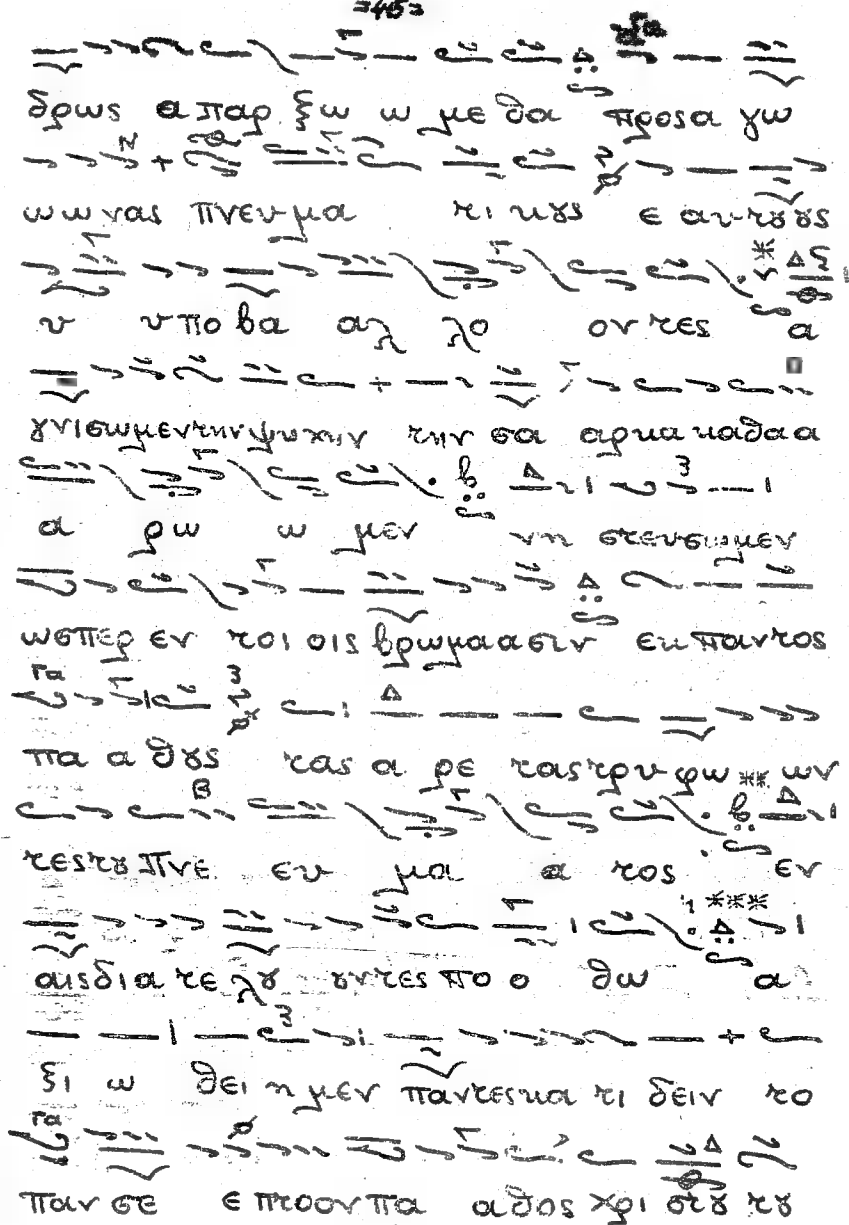 =45=
δρως α παρ ξω ω με θα προςα γω
ω ω νας πνευ μα τι κȣς ε αυ τȣ ȣς
υ υ πο βα αλ λο ον τες α
γνισωμεντηνψυχην την σα αρκα καθα α
α ρω ω μεν νη στευσωμεν
ωσπερ εν τοι οις βρωμα α α σιν εκ παντος
πα α θȣς τας α ρε τας τρυ φω ων
τες τȣ πνε ευ μα α τος εν
αις δι α τε λȣ ȣντες πο ο θω α
ξι ω θει η μεν παντες κα τι δειν το
παν σε ε πτοον πα αθος χρι στȣ τȣ